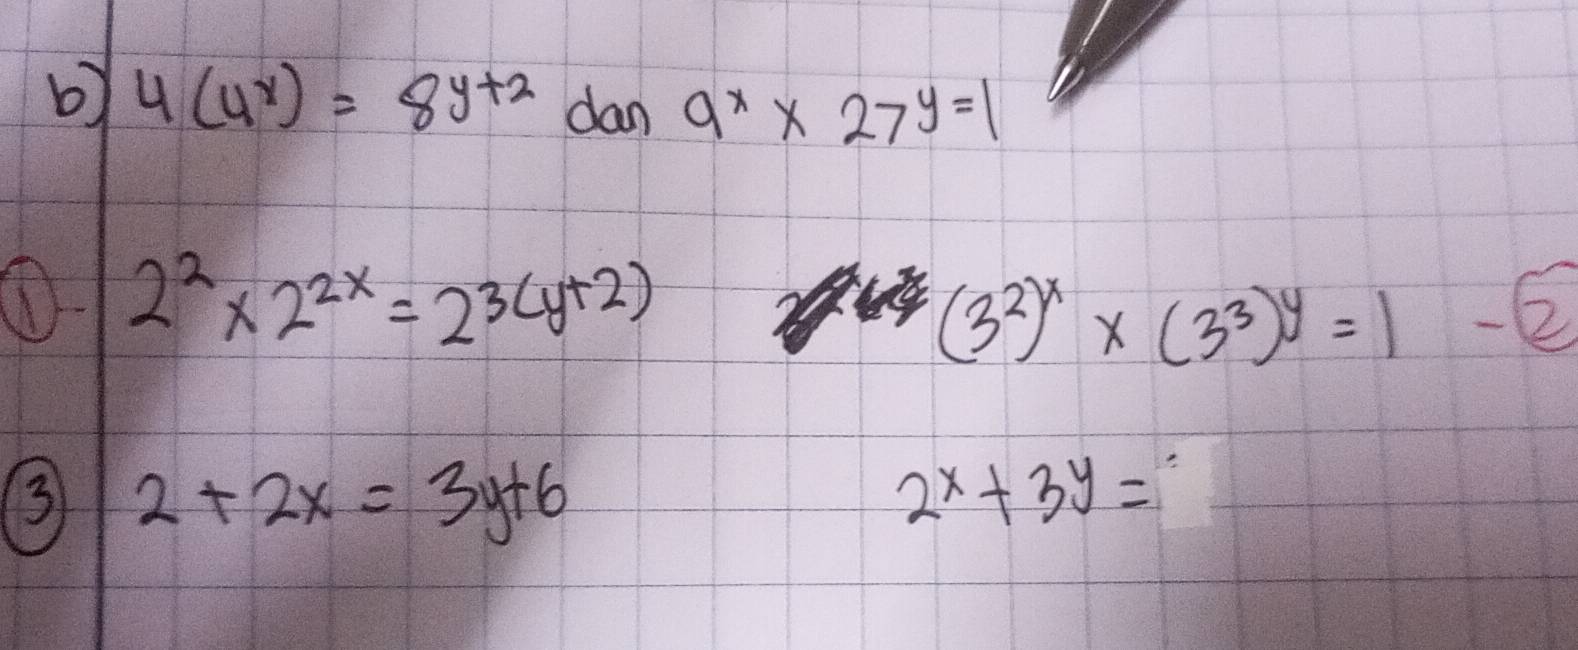 b) 4(4ˣ) = 8ʸ⁺² dan 9ˣ × 27ʸ = 1
① - 2² × 2²ˣ = 2³⁽ʸ⁺²⁾ (3²)ˣ × (3³)ʸ = 1 - ②
③ 2 + 2x = 3y+6 2ˣ + 3ʸ =